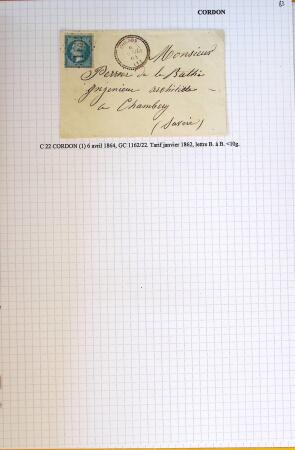 CORDON
Monsieur
Perrier de la Bathie
Ingénieur architecte
a Chambéry
(Savoie)
C 22 CORDON (1) 6 avril 1864, GC 1162/22. Tarif janvier 1862, lettre B. à B. <10g.